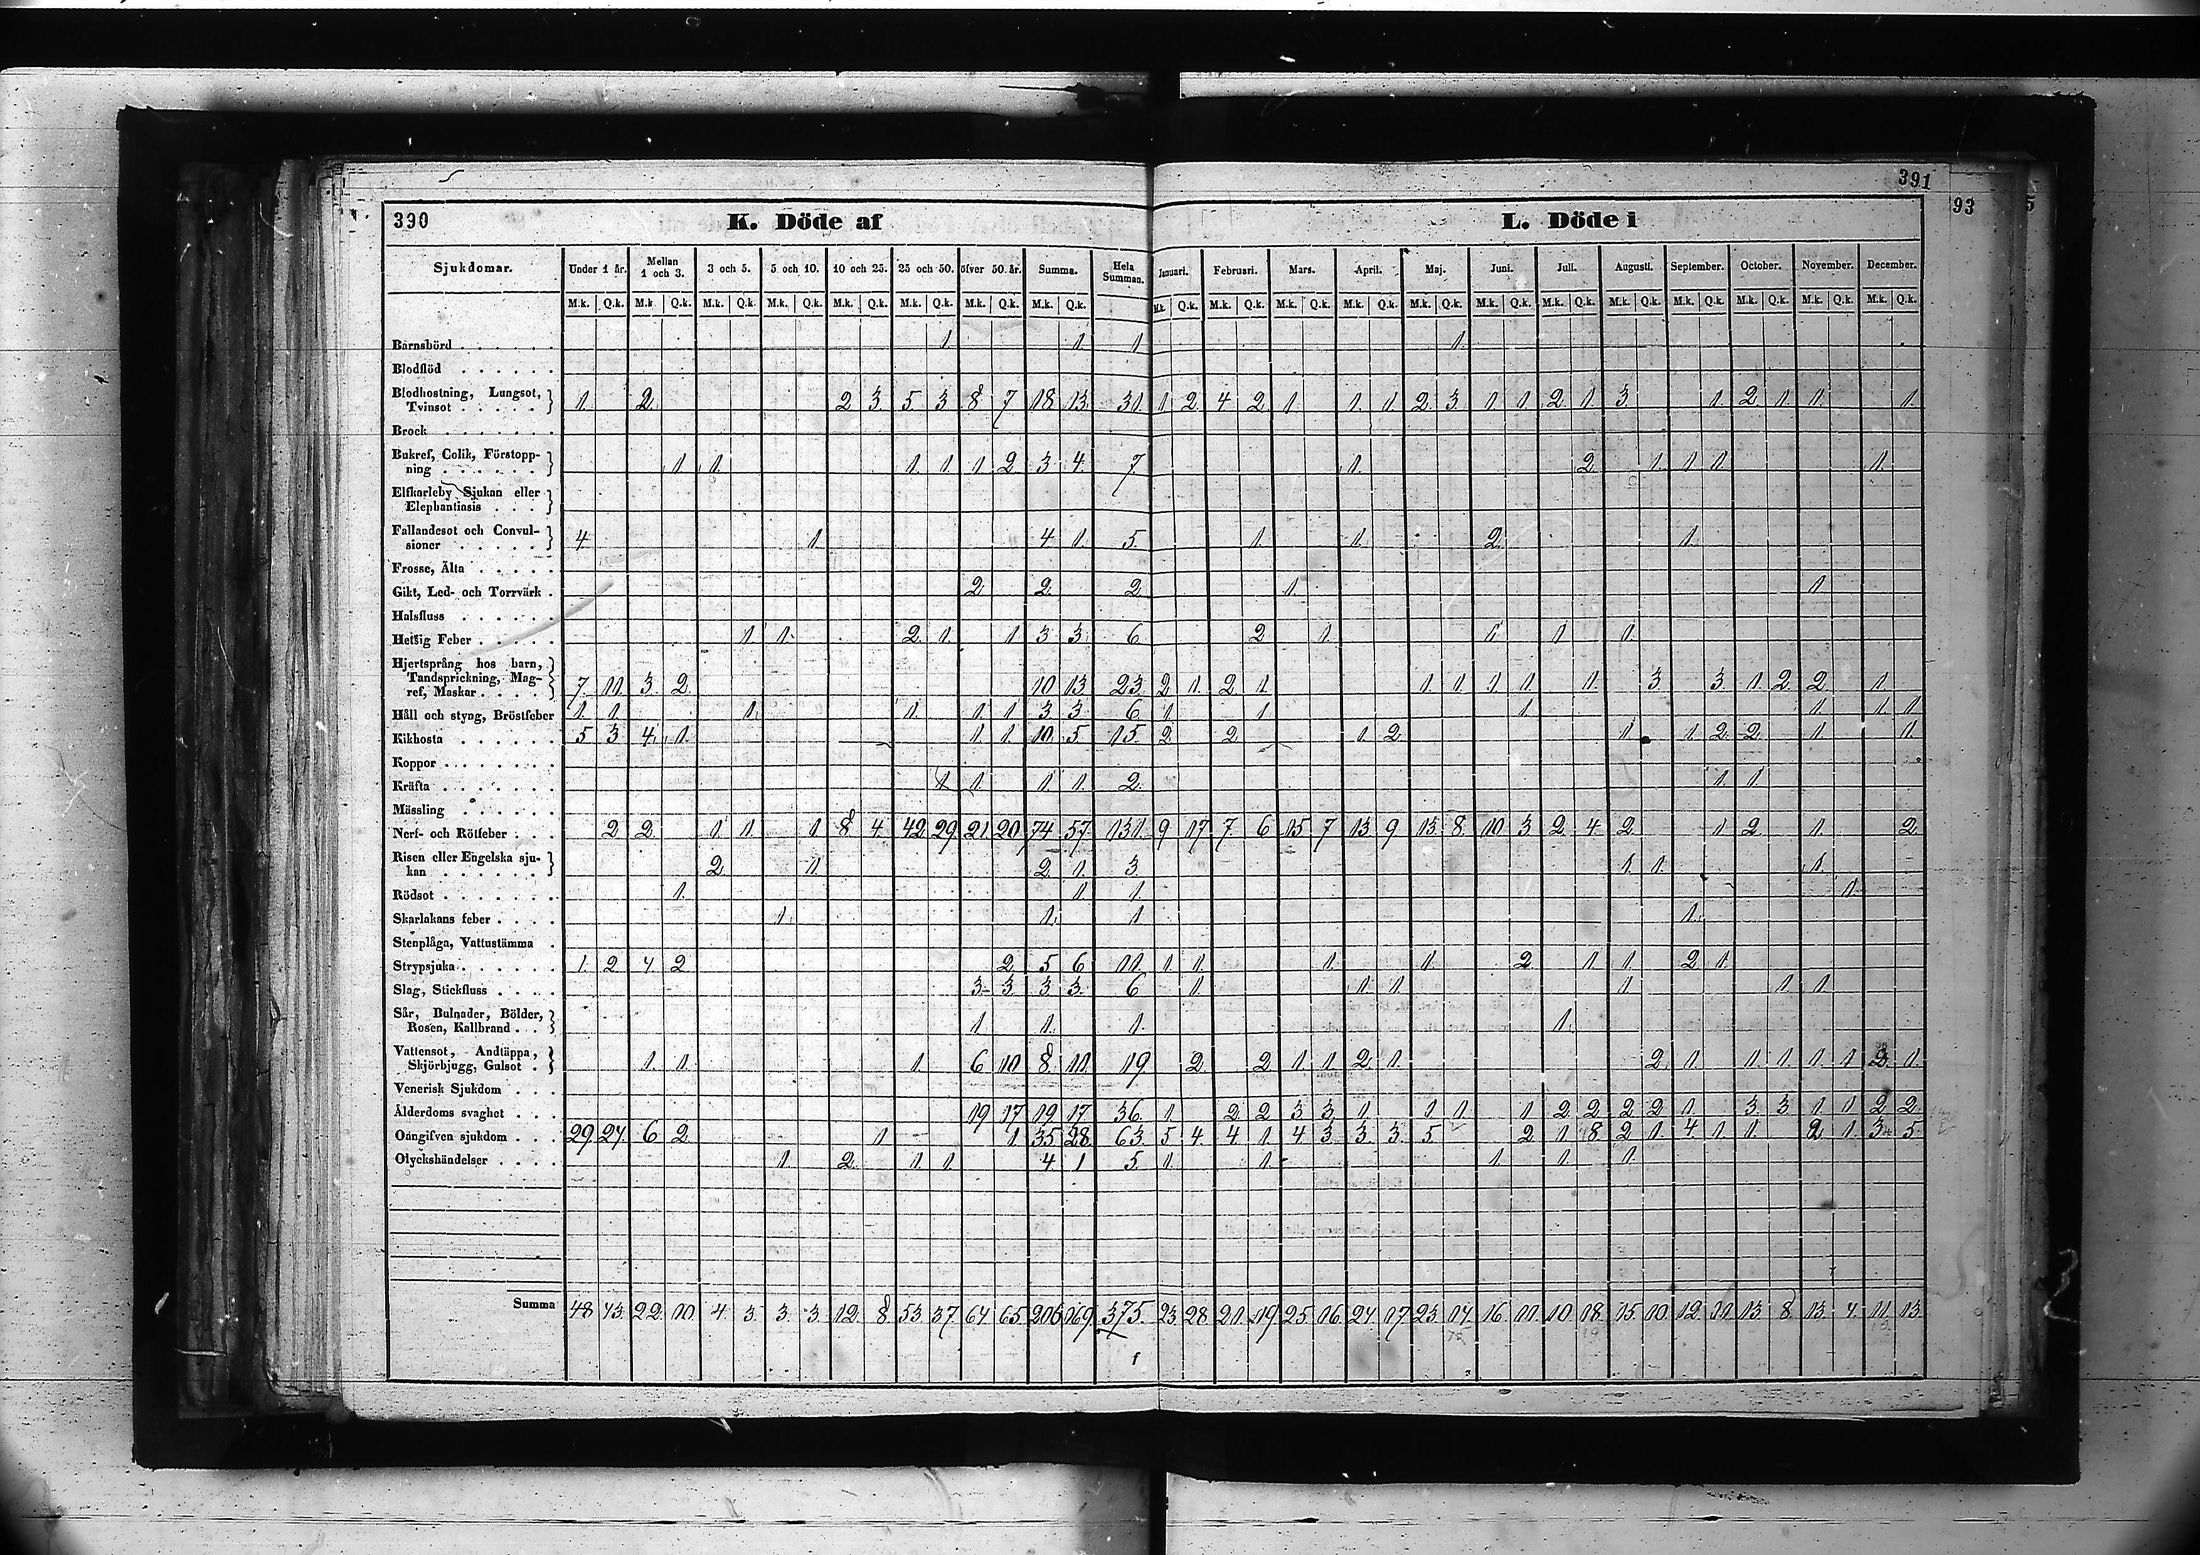 391
390 K. Döde af L. Döde i 93 5
Sjukdomar. Under 1 år. Mellan 1 och 3. 3 och 5. 5 och 10. 10 och 25. 25 och 50. öfver 50. år. Summa. Hela Summan. Januari. Februari. Mars. April. Maj. Juni. Juli. Augusti. September. October. November. December.
M.k. Q.k. M.k Q.k. M.k. Q.k. M.k. Q.k. M.k. Q.k. M.k. Q.k. M.k. Q.k. M.k. Q.k. M.k. Q.k. M.k. Q.k. M.k. Q.k. M.k. Q.k. M.k. Q.k. M.k. Q.k. M.k. Q.k. M.k. Q.k. M.k. Q.k. M.k. Q.k. M.k. Q.k. M.k. Q.k.
Barnsbörd 1. 1. 1 1.
Blodflöd
Blodhostning, Lungsot,
Tvinsot 1. 2. 2 3 5 3 8 7 18 13. 31. 1 2 4 2 1 1. 1. 2. 3. 1 1 2. 1. 3. 1 2 1 1. 1.
Brock
Bukref, Colik, Förstopp-
ning 1 1. 1. 1 1 2 3 4. 7 1. 2 1. 1 1. 1.
Elfkarleby Sjukan eller
Elephantiasis
Fallandesot och Convul-
sioner 4 1. 4 1. 5. 1. 1. 2. 1.
Frosse, Älta
Gikt, Led- och Torrvärk 2. 2. 2 1. 1.
Halsfluss
Hetsig Feber 1 1. 2 1. 1 3 3. 6 2 1. 1 1 1.
Hjertsprång hos barn,
Tandsprickning, Mag-
ref, Maskar 7. 11. 3. 2. 10 13. 23. 2 1. 2. 1. 1. 1. 1 1. 1. 3. 3. 1. 2. 2 1.
Håll och styng, Bröstfeber 1. 1. 1. 1. 1 1 3 3 6 1 1 1. 1. 1 1
Kikhosta 5 3 4. 1. 1 1. 10. 5. 15. 2 2 1 2 1 1 2 2 1. 1.
Koppor
Kräfta 1 1. 1. 1. 2. 1 1.
Mässling
Nerf- och Rötfeber 2 2 1 1. 1 8 4 42 29. 21 20 74 57. 131. 9 17 7 6 15 7 13 9 13. 8. 10 3 2 4. 2 1 2. 1. 2.
Risen eller Engelska sju-
kan 2 1. 2 1. 3. 1 1. 1.
Rödsot 1. 1. 1. 1.
Skarlakans feber 1. 1. 1 1.
Stenplåga, Vattustämma
Strypsjuka 1. 2 4 2 2 5 6 11. 1. 1. 1. 1. 2 1 1. 2 1.
Slag, Stickfluss 3 3. 3 3. 6 1. 1 1. 1. 1 1.
Sår, Bulnader, Bölder,
Rosen, Kallbrand 1 1. 1. 1.
Vattensot, Andtäppa,
Skjörbjugg, Gulsot 1. 1. 1. 6 10 8. 11. 19. 2. 2 1. 1. 2 1. 2 1. 1. 1. 1. 1 2. 1.
Venerisk Sjukdom
Ålderdoms svaghet 19 17 19 17. 36. 1. 2 2 3 3 1. 1 1 1 2 2 2 2 1. 3 3 1. 1 2 2.
Oangifven sjukdom 29 24. 6 2 1 1 35 28. 63 5 4. 4 1. 4 3. 3. 3. 5 2 1. 8 2 1. 4 1. 1. 2 1. 3 5.
Olyckshändelser 1. 2. 1. 1. 4. 1 5. 1. 1. 1. 1. 1.
Summa 48 43. 22. 10. 4 3. 3. 3 12. 8. 53. 37. 64 65 206 169. 375. 23. 28. 21. 19. 25 16. 24 17 23. 14. 16 11. 10. 18. 15. 10. 12. 11. 13. 8. 13. 4. 11. 13.